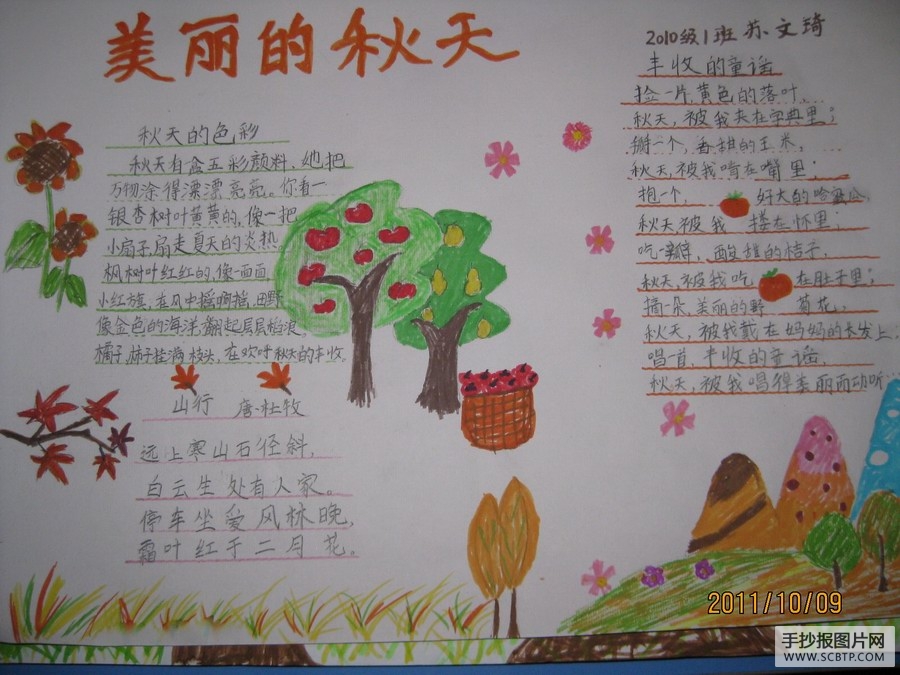 美丽的秋天
秋天的色彩
秋天有盒五彩颜料，她把
万物涂得漂漂亮亮。你看一
银杏树叶黄黄的，像一把
小扇子，扇走夏天的炎热
枫树叶红红的，像一面面
小红旗，在风中摇啊摇，田野
像金色的海洋翻起层层稻浪
橘子，柿子挂满枝头，在欢呼秋天的丰收。
山行 唐·杜牧
远上寒山石径斜，
白云生处有人家。
停车坐爱风林晚，
霜叶红于二月花。
2010级1班 苏文琦
丰收的童谣
捡一片，黄色的落叶，
秋天，被我夹在字典里；
掰一个，香甜的玉米，
秋天，被我啃在嘴里；
抱一个 好大的哈蜜瓜，
秋天被我 搂在怀里；
吃一瓣，酸甜的桔子，
秋天，被我吃 在肚子里；
摘一朵，美丽的野 菊花，
秋天，被我戴在妈妈的长发上；
唱一首 丰收的童谣，
秋天，被我唱得美丽而动听…
2011/10/09
手抄报图片网
WWW.SCBTP.COM